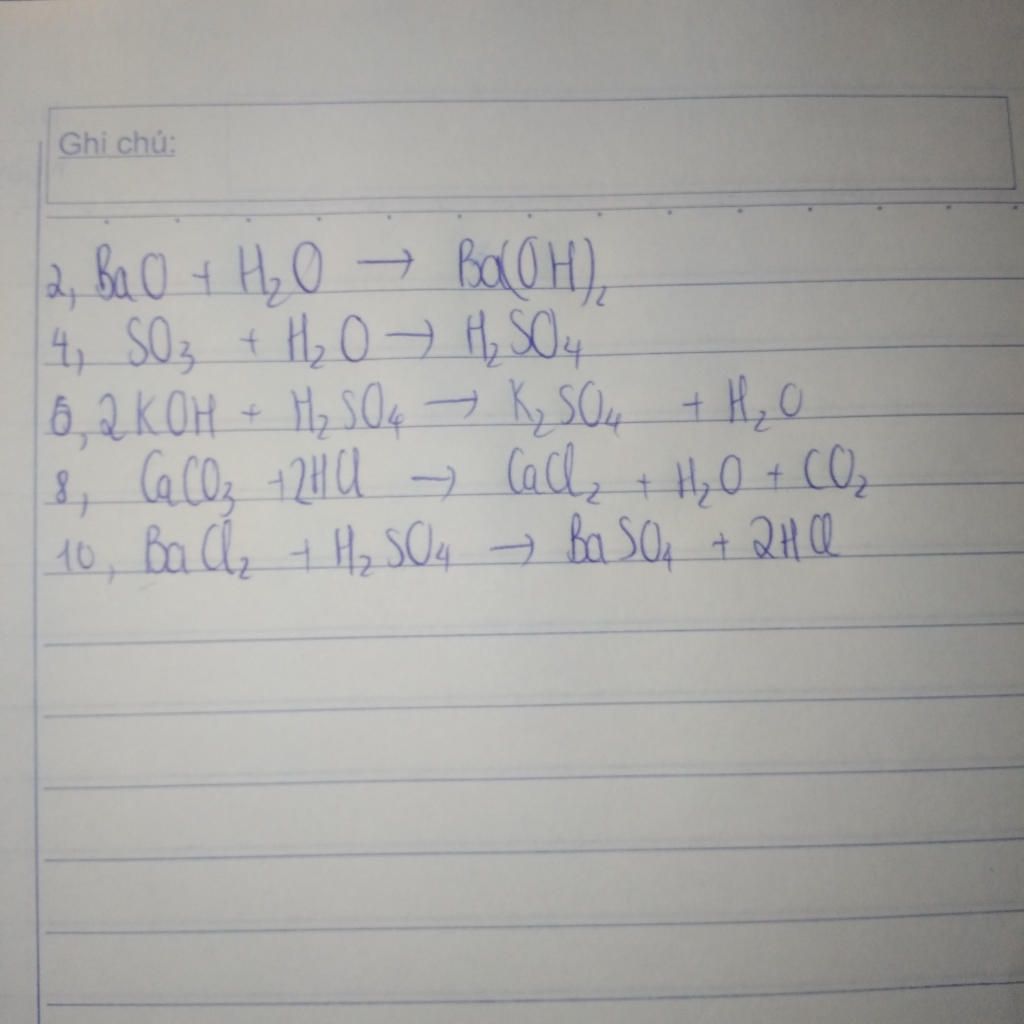 Ghi chú:
2, BaO + H₂O → Ba(OH)₂
4, SO₃ + H₂O → H₂SO₄
6, 2KOH + H₂SO₄ → K₂SO₄ + H₂O
8, CaCO₃ + 2HCl → CaCl₂ + H₂O + CO₂
10, BaCl₂ + H₂SO₄ → BaSO₄ + 2HCl